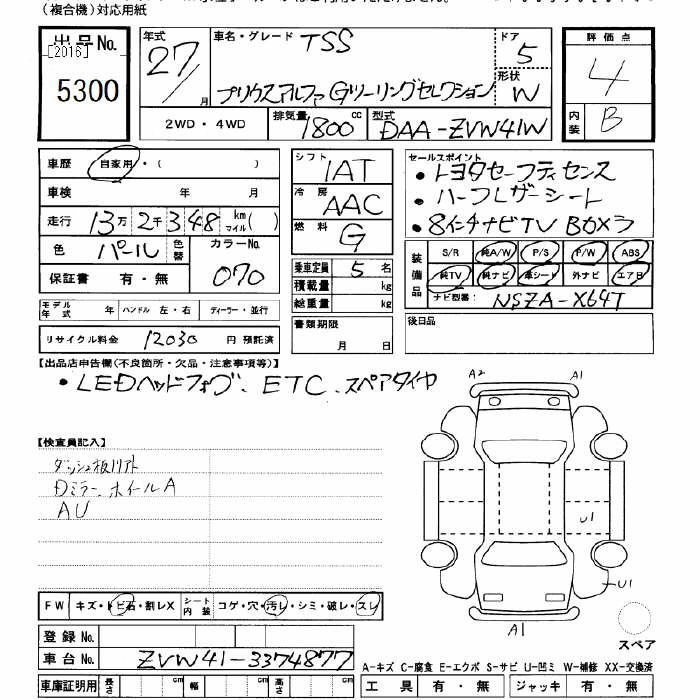 (複合機)対応用紙
出品No. [2016] 5300
年式 27/月 車名・グレード TSS ドア 5
プリウスアルファGツーリングセレクション 形状 W
評価点 4 内装 B
2WD・4WD 排気量 1800cc 型式 DAA-ZVW41W
車歴 自家用・( ) シフト IAT セールスポイント
・トヨタセーフティセンス
車検 年 月 冷房 AAC ・ハーフレザーシート
走行 13万2千348km マイル( ) 燃料 G ・8インチナビTV BOX3
色 パール 色替 カラーNo. 070
保証書 有・無
乗車定員 5名
積載量 kg
総重量 kg
装備品 S/R 純A/W P/S P/W ABS
純TV 純ナビ 革シート 外ナビ エアB
ナビ型番: NSZA-X64T
モデル年式 年 ハンドル 左・右 ディーラー・並行
リサイクル料金 12030 円 預託済
書類期限 月 日
後日品
【出品店申告欄(不良箇所・欠品・注意事項等)】
・LEDヘッドフォグ、ETC、スペアタイヤ
A2 A1
【検査員記入】
ダッシュ板リアト
Dミラー、ホイールA
AU
U1
U1
A1
FW キズ・トビ石・割レX シート内装 コゲ・穴・汚レ・シミ・破レ・スレ
登録No.
スペア
車台No. ZVW41-3374877
A-キズ C-腐食 E-エクボ S-サビ U-凹ミ W-補修 XX-交換済
車庫証明用 長さ cm 幅 cm 高さ cm 工具 有・無 ジャッキ 有・無